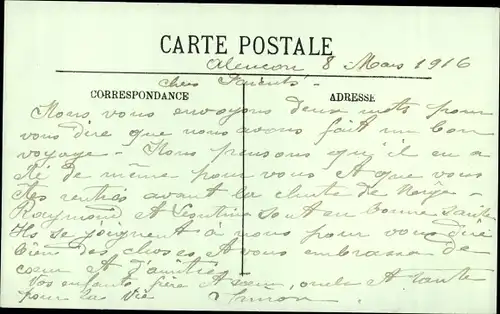 CARTE POSTALE
Alençon 8 Mars 1916
chers Parents -
CORRESPONDANCE
ADRESSE
Nous vous envoyons deux mots pour
vous dire que nous avons fait un bon
voyage - Nous pensons qu'il en a
été de même pour vous et que vous
êtes rentrés avant la chute de neige -
Raymond et Léontine sont en bonne santé
Ils se joignent à nous pour vous dire
bien des choses et vous embrasser de
cœur et d'amitiés
vos enfants, frère et sœur, oncle et tante
pour la vie Simon